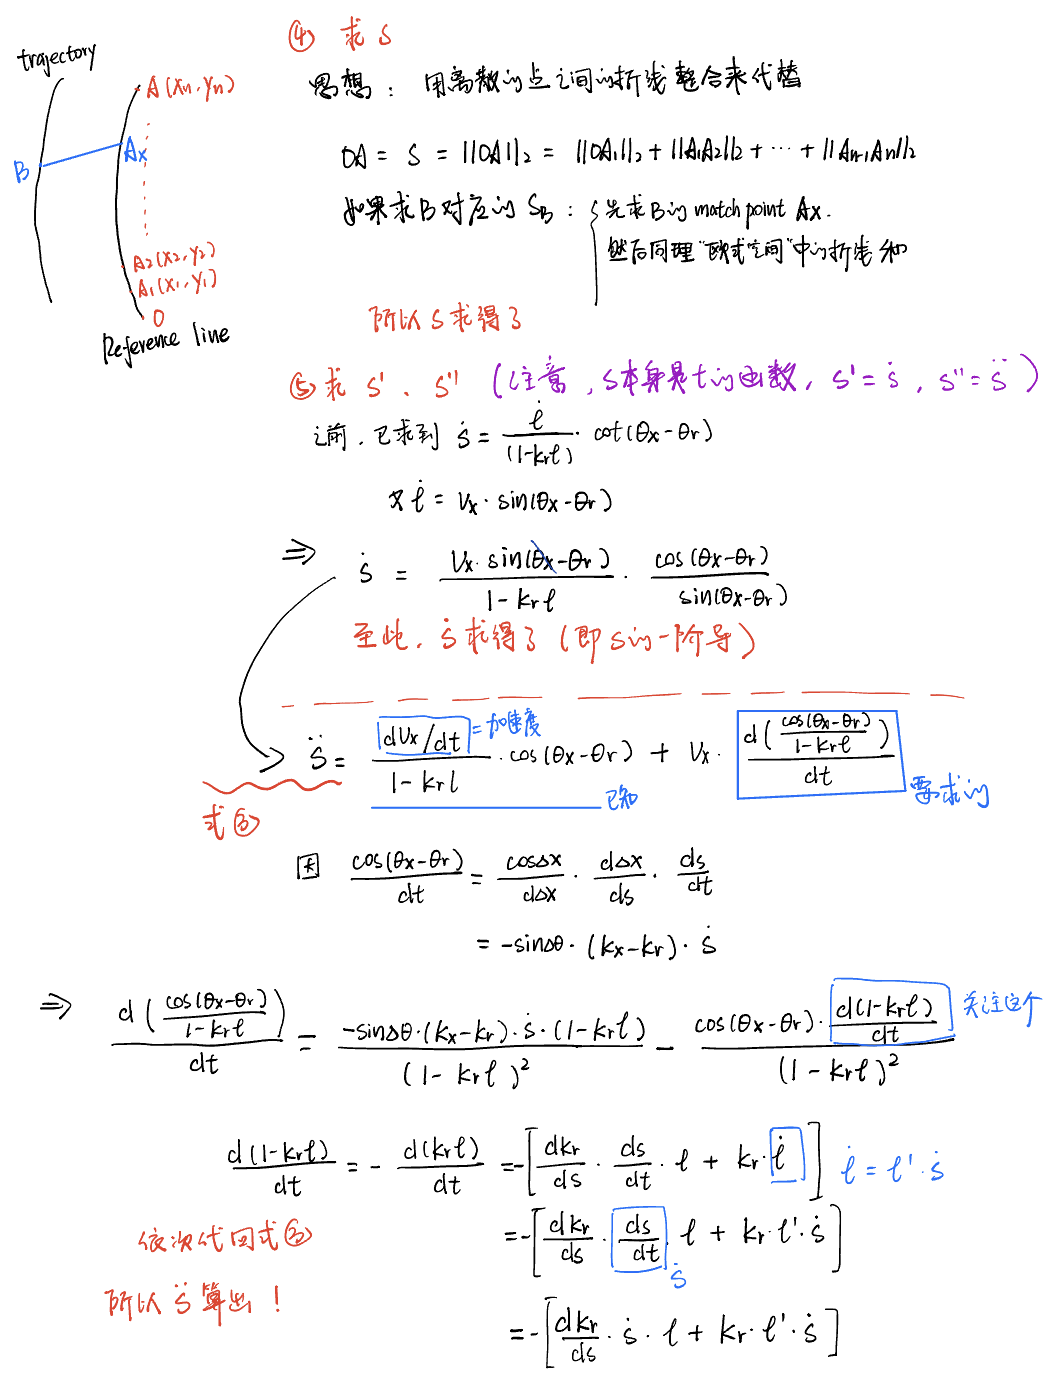 trajectory
A(xn,yn)
B
Ax
A2(x2,y2)
A1(x1,y1)
O
Reference line
④ 求 s
思想: 用离散的点之间的折线整合来代替
OA = s = ||OA||₂ = ||OA₁||₂ + ||A₁A₂||₂ + ⋯ + ||An-1An||₂
如果求B对应的 S_B : { 先求B的 match point Ax.
然后同理"欧式空间"中的折线和
所以 s 求得了
⑤ 求 s'、s'' (注意, s本身是t的函数, s' = ṡ, s'' = s̈)
之前, 已求到 ṡ = l̇/(1-krl) · cot(θx-θr)
又 l̇ = Vx · sin(θx-θr)
⇒ ṡ = Vx·sin(θx-θr)/(1-krl) · cos(θx-θr)/sin(θx-θr)
至此, ṡ 求得了 (即 s 的一阶导)
s̈ = (dVx/dt)/(1-krl) · cos(θx-θr) + Vx · d(cos(θx-θr)/(1-krl))/dt
=加速度
已知
要求的
式⑥
因 cos(θx-θr)/dt = cosΔx/dΔx · dΔx/ds · ds/dt
= -sinΔθ · (kx-kr) · ṡ
⇒ d(cos(θx-θr)/(1-krl))/dt = -sinΔθ·(kx-kr)·ṡ·(1-krl)/(1-krl)² - cos(θx-θr)·d(1-krl)/dt/(1-krl)²
关注这个
d(1-krl)/dt = - d(krl)/dt = -[dkr/ds · ds/dt · l + kr·l̇] l̇ = l'·ṡ
= -[dkr/ds · ds/dt · l + kr·l'·ṡ]
ṡ
= -[dkr/ds · ṡ · l + kr·l'·ṡ]
依次代回式⑥
所以 s̈ 算出!